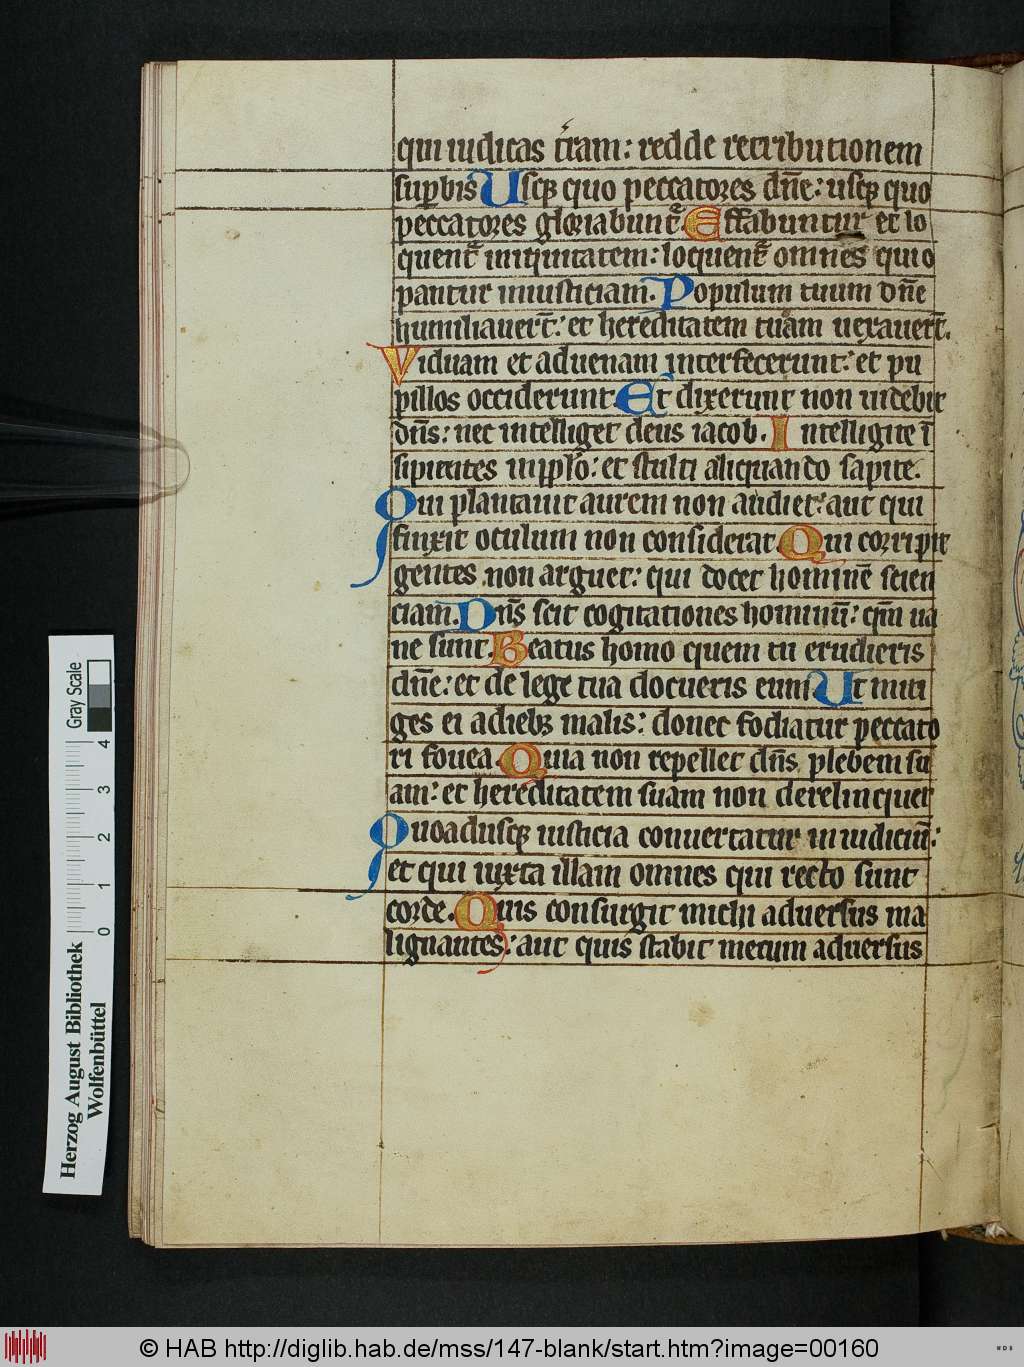 qui iudicas t̄ram: redde retributionem
suꝑbis Usq꜓ quo peccatores dn̄e: usq꜓ quo
peccatores gloriabunt᷑. Effabuntur et lo
quent᷑ iniquitatem: loquent᷑ omnes qui o
pantur iniusticiam. Populum tuum dn̄e
humiliauer̄t: et hereditatem tuam uexauer̄t.
Viduam et aduenam interfecerunt: et pu
pillos occiderunt Et dixerunt non uidebit
dn̄s: nec intelliget deus iacob. Intelligite ī
sipientes in pp̄lo: et stulti aliquando sapite.
Qui plantauit aurem non audiet: aut qui
finxit oculum non considerat Qui corripit
gentes non arguet: qui docet hominē scien
ciam. Dn̄s scit cogitationes hominū: qm̄ ua
ne sunt. Beatus homo quem tu erudieris
dn̄e: et de lege tua docueris eum Ut miti
ges ei a dieb꜓ malis: donec fodiatur peccato
ri fouea. Quia non repellet dn̄s plebem su
am: et hereditatem suam non derelinquet
Quoadusq꜓ iusticia conuertatur in iudiciū:
et qui iuxta illam omnes qui recto sunt
corde. Quis consurgit michi aduersus ma
lignantes: aut quis stabit mecum aduersus
Gray Scale
0 1 2 3 4
Herzog August Bibliothek
Wolfenbüttel
© HAB http://diglib.hab.de/mss/147-blank/start.htm?image=00160